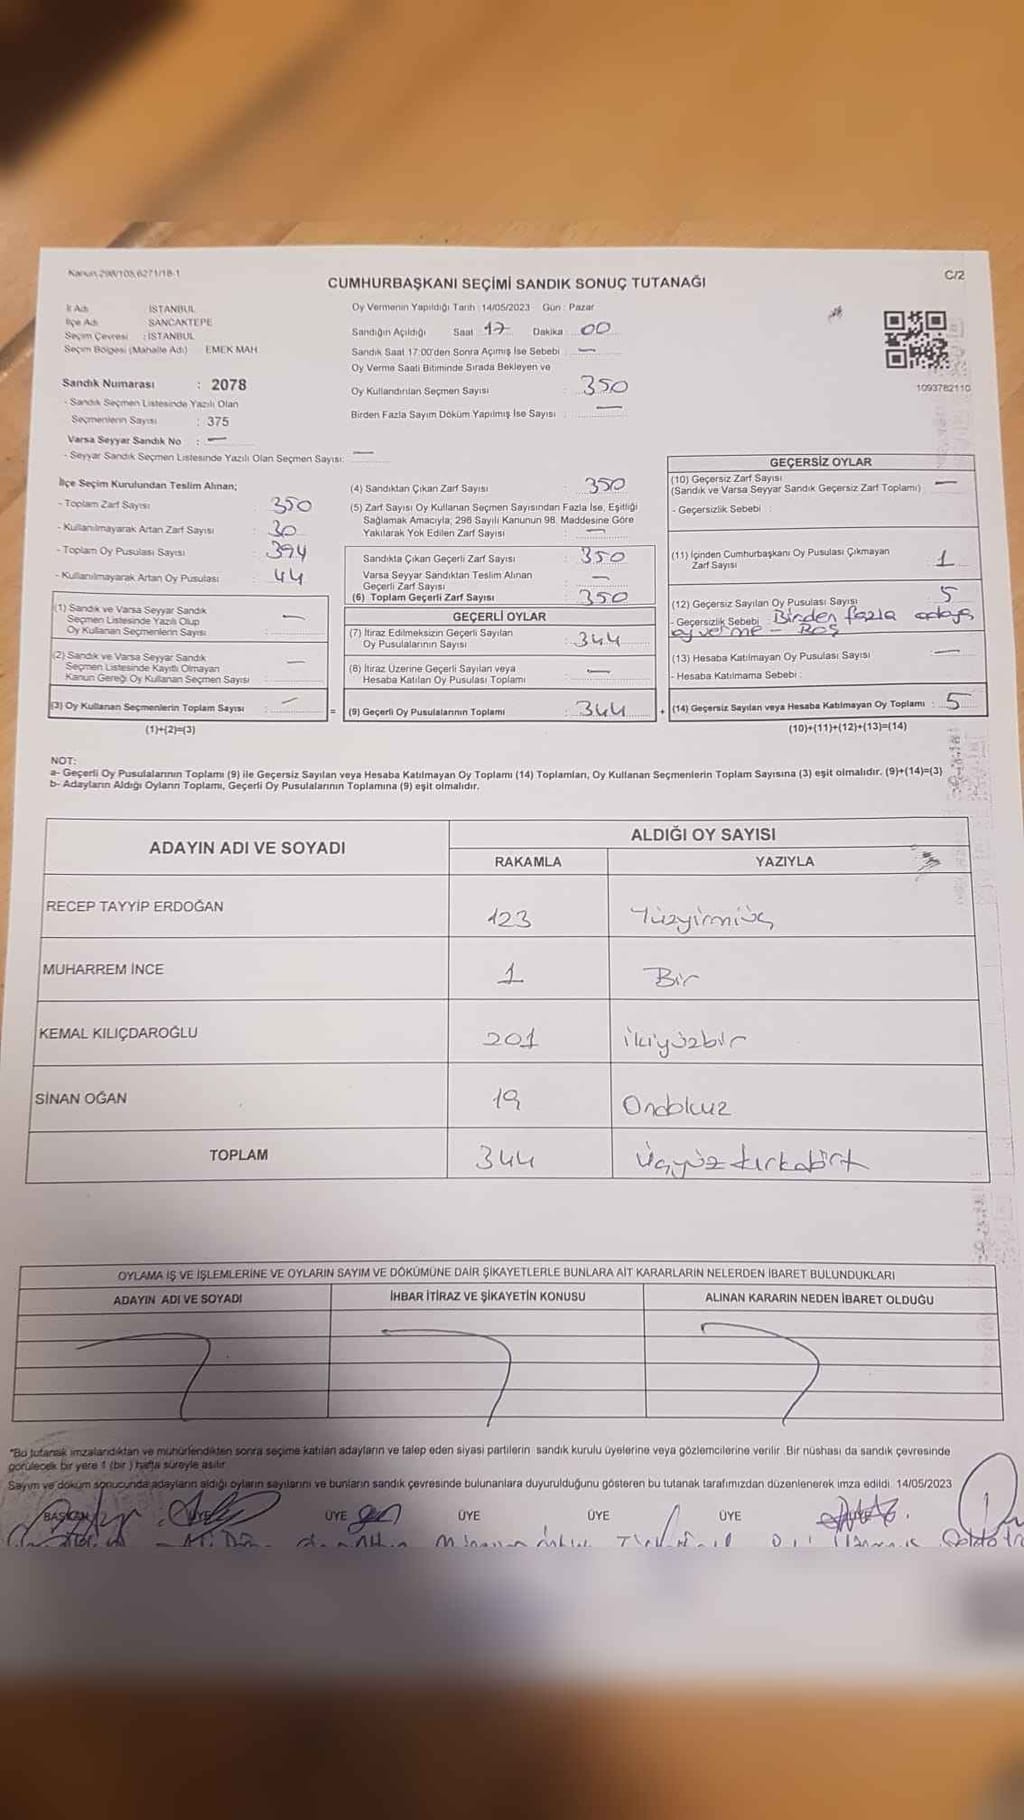 Kanun:298/105,6271/18-1
C/2
CUMHURBAŞKANI SEÇİMİ SANDIK SONUÇ TUTANAĞI
İl Adı : İSTANBUL
İlçe Adı : SANCAKTEPE
Seçim Çevresi : İSTANBUL
Seçim Bölgesi (Mahalle Adı) EMEK MAH.
Sandık Numarası : 2078
- Sandık Seçmen Listesinde Yazılı Olan
Seçmenlerin Sayısı : 375
Varsa Seyyar Sandık No : —
- Seyyar Sandık Seçmen Listesinde Yazılı Olan Seçmen Sayısı: —
Oy Vermenin Yapıldığı Tarih : 14/05/2023 Gün : Pazar
Sandığın Açıldığı Saat 17 Dakika 00
Sandık Saat 17:00'den Sonra Açılmış İse Sebebi : —
Oy Verme Saati Bitiminde Sırada Bekleyen ve
Oy Kullandırılan Seçmen Sayısı : 350
Birden Fazla Sayım Döküm Yapılmış İse Sayısı : —
1093782110
İlçe Seçim Kurulundan Teslim Alınan;
- Toplam Zarf Sayısı : 350
- Kullanılmayarak Artan Zarf Sayısı : 30
- Toplam Oy Pusulası Sayısı : 394
- Kullanılmayarak Artan Oy Pusulası : 44
(1) Sandık ve Varsa Seyyar Sandık
Seçmen Listesinde Yazılı Olup
Oy Kullanan Seçmenlerin Sayısı : —
(2) Sandık ve Varsa Seyyar Sandık
Seçmen Listesinde Kayıtlı Olmayan
Kanun Gereği Oy Kullanan Seçmen Sayısı : —
(3) Oy Kullanan Seçmenlerin Toplam Sayısı : —
(1)+(2)=(3)
(4) Sandıktan Çıkan Zarf Sayısı : 350
(5) Zarf Sayısı Oy Kullanan Seçmen Sayısından Fazla İse, Eşitliği
Sağlamak Amacıyla; 298 Sayılı Kanunun 98. Maddesine Göre
Yakılarak Yok Edilen Zarf Sayısı : —
Sandıkta Çıkan Geçerli Zarf Sayısı : 350
Varsa Seyyar Sandıktan Teslim Alınan
Geçerli Zarf Sayısı : —
(6) Toplam Geçerli Zarf Sayısı : 350
GEÇERLİ OYLAR
(7) İtiraz Edilmeksizin Geçerli Sayılan
Oy Pusulalarının Sayısı : 344
(8) İtiraz Üzerine Geçerli Sayılan veya
Hesaba Katılan Oy Pusulası Toplamı : —
= (9) Geçerli Oy Pusulalarının Toplamı : 344
GEÇERSİZ OYLAR
(10) Geçersiz Zarf Sayısı :
(Sandık ve Varsa Seyyar Sandık Geçersiz Zarf Toplamı) —
- Geçersizlik Sebebi :
(11) İçinden Cumhurbaşkanı Oy Pusulası Çıkmayan
Zarf Sayısı : 1
(12) Geçersiz Sayılan Oy Pusulası Sayısı : 5
- Geçersizlik Sebebi : Birden fazla adaya
oy verme - Boş
(13) Hesaba Katılmayan Oy Pusulası Sayısı : —
- Hesaba Katılmama Sebebi :
+ (14) Geçersiz Sayılan veya Hesaba Katılmayan Oy Toplamı : 5
(10)+(11)+(12)+(13)=(14)
NOT:
a- Geçerli Oy Pusulalarının Toplamı (9) ile Geçersiz Sayılan veya Hesaba Katılmayan Oy Toplamı (14) Toplamları, Oy Kullanan Seçmenlerin Toplam Sayısına (3) eşit olmalıdır. (9)+(14)=(3)
b- Adayların Aldığı Oyların Toplamı, Geçerli Oy Pusulalarının Toplamına (9) eşit olmalıdır.
ADAYIN ADI VE SOYADI
ALDIĞI OY SAYISI
RAKAMLA YAZIYLA
RECEP TAYYİP ERDOĞAN 123 Yüzyirmiüç
MUHARREM İNCE 1 Bir
KEMAL KILIÇDAROĞLU 201 ikiyüzbir
SİNAN OĞAN 19 Ondokuz
TOPLAM 344 Üçyüz kırkdört
OYLAMA İŞ VE İŞLEMLERİNE VE OYLARIN SAYIM VE DÖKÜMÜNE DAİR ŞİKAYETLERLE BUNLARA AİT KARARLARIN NELERDEN İBARET BULUNDUKLARI
ADAYIN ADI VE SOYADI İHBAR İTİRAZ VE ŞİKAYETİN KONUSU ALINAN KARARIN NEDEN İBARET OLDUĞU
*Bu tutanak imzalandıktan ve mühürlendikten sonra seçime katılan adayların ve talep eden siyasi partilerin sandık kurulu üyelerine veya gözlemcilerine verilir. Bir nüshası da sandık çevresinde
görülecek bir yere 1 (bir) hafta süreyle asılır.
Sayım ve döküm sonucunda adayların aldığı oyların sayılarını ve bunların sandık çevresinde bulunanlara duyurulduğunu gösteren bu tutanak tarafımızdan düzenlenerek imza edildi. 14/05/2023
BAŞKAN ÜYE ÜYE ÜYE ÜYE ÜYE